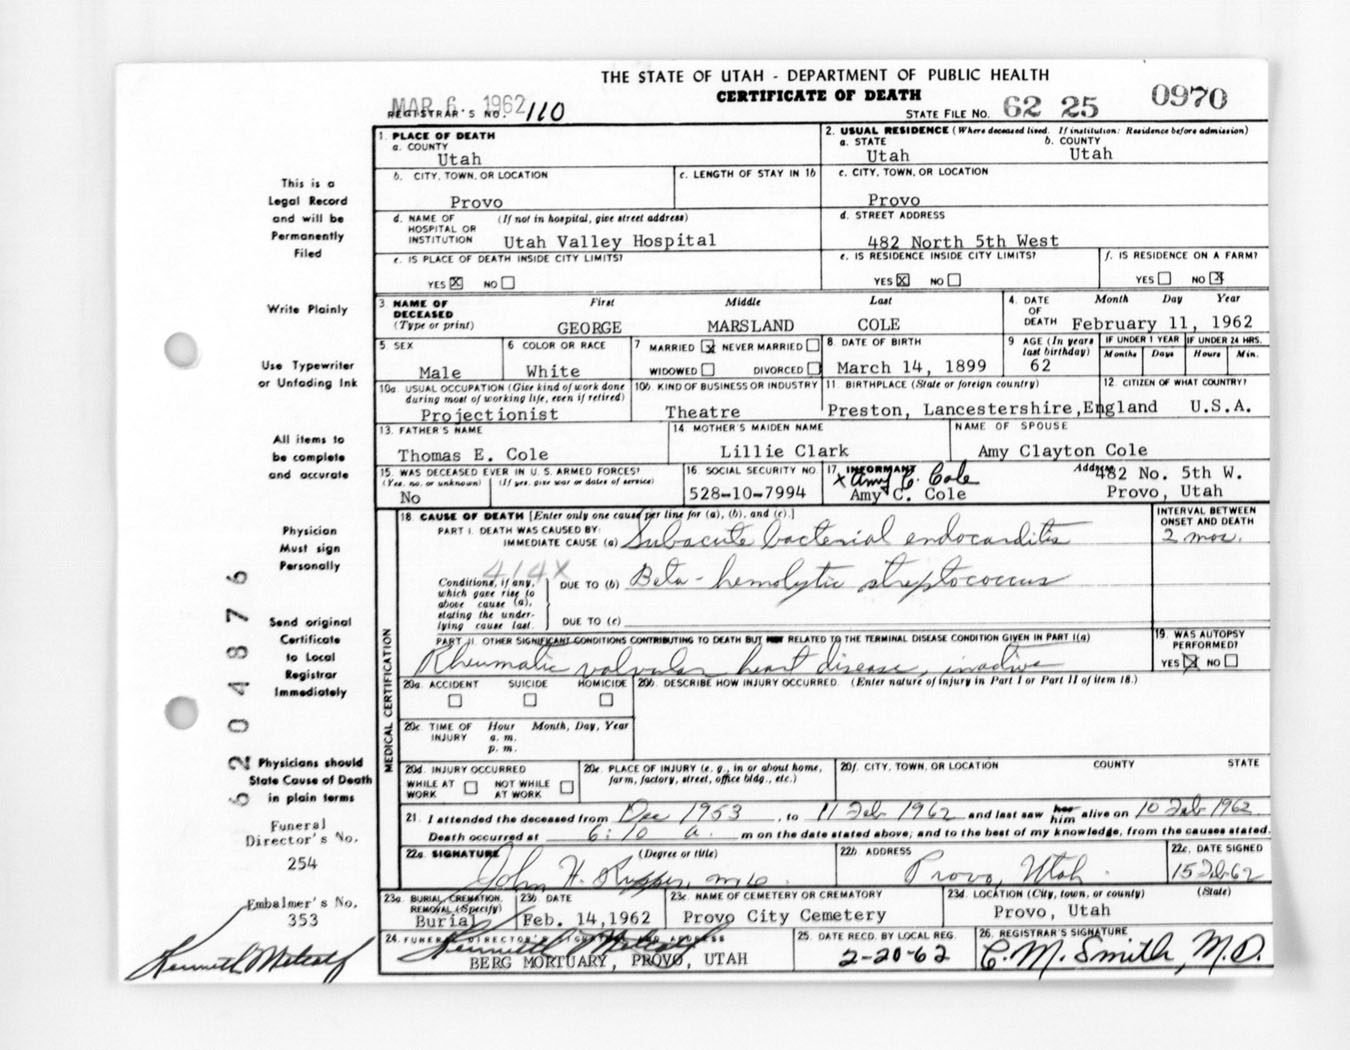 THE STATE OF UTAH - DEPARTMENT OF PUBLIC HEALTH
CERTIFICATE OF DEATH
MAR 6 1962
REGISTRAR'S NO. 110
STATE FILE NO. 62 25 0970
1. PLACE OF DEATH
a. COUNTY
Utah
2. USUAL RESIDENCE (Where deceased lived. If institution: Residence before admission)
a. STATE b. COUNTY
Utah Utah
b. CITY, TOWN, OR LOCATION
Provo
c. LENGTH OF STAY IN 1b
c. CITY, TOWN, OR LOCATION
Provo
d. NAME OF HOSPITAL OR INSTITUTION (If not in hospital, give street address)
Utah Valley Hospital
d. STREET ADDRESS
482 North 5th West
e. IS PLACE OF DEATH INSIDE CITY LIMITS?
YES X NO
e. IS RESIDENCE INSIDE CITY LIMITS?
YES X NO
f. IS RESIDENCE ON A FARM?
YES NO X
3. NAME OF DECEASED (Type or print)
First Middle Last
GEORGE MARSLAND COLE
4. DATE OF DEATH Month Day Year
February 11, 1962
5. SEX
Male
6 COLOR OR RACE
White
7 MARRIED X NEVER MARRIED
WIDOWED DIVORCED
8. DATE OF BIRTH
March 14, 1899
9 AGE (In years last birthday)
62
IF UNDER 1 YEAR IF UNDER 24 HRS.
Months Days Hours Min.
10a. USUAL OCCUPATION (Give kind of work done during most of working life, even if retired)
Projectionist
10b. KIND OF BUSINESS OR INDUSTRY
Theatre
11. BIRTHPLACE (State or foreign country)
Preston, Lancestershire, England
12. CITIZEN OF WHAT COUNTRY?
U.S.A.
13. FATHER'S NAME
Thomas E. Cole
14 MOTHER'S MAIDEN NAME
Lillie Clark
NAME OF SPOUSE
Amy Clayton Cole
15. WAS DECEASED EVER IN U.S. ARMED FORCES?
(Yes, no, or unknown) (If yes, give war or dates of service)
No
16 SOCIAL SECURITY NO.
528-10-7994
17. INFORMANT
x Amy C. Cole
Amy C. Cole
Address
482 No. 5th W.
Provo, Utah
18. CAUSE OF DEATH [Enter only one cause per line for (a), (b), and (c).]
PART I. DEATH WAS CAUSED BY:
IMMEDIATE CAUSE (a) Subacute bacterial endocarditis
INTERVAL BETWEEN ONSET AND DEATH
2 mos.
414X
Conditions, if any, which gave rise to above cause (a), stating the underlying cause last.
DUE TO (b) Beta-hemolytic streptococcus
DUE TO (c)
PART II. OTHER SIGNIFICANT CONDITIONS CONTRIBUTING TO DEATH BUT NOT RELATED TO THE TERMINAL DISEASE CONDITION GIVEN IN PART I(a)
Rheumatic valvular heart disease, inactive
19. WAS AUTOPSY PERFORMED?
YES X NO
MEDICAL CERTIFICATION
20a. ACCIDENT SUICIDE HOMICIDE
20b. DESCRIBE HOW INJURY OCCURRED. (Enter nature of injury in Part I or Part II of item 18.)
20c. TIME OF INJURY Hour Month, Day, Year
a. m.
p. m.
20d. INJURY OCCURRED
WHILE AT WORK NOT WHILE AT WORK
20e. PLACE OF INJURY (e. g., in or about home, farm, factory, street, office bldg., etc.)
20f. CITY, TOWN, OR LOCATION COUNTY STATE
21. I attended the deceased from Dec 1953, to 11 Feb 1962 and last saw her him alive on 10 Feb 1962
Death occurred at 6:10 a. m on the date stated above; and to the best of my knowledge, from the causes stated.
22a. SIGNATURE (Degree or title)
John H.
22b ADDRESS
Provo, Utah.
22c. DATE SIGNED
15 Feb 62
23a. BURIAL, CREMATION, REMOVAL (Specify)
Burial
23b. DATE
Feb. 14, 1962
23c. NAME OF CEMETERY OR CREMATORY
Provo City Cemetery
23d. LOCATION (City, town, or county) (State)
Provo, Utah
24. FUNERAL DIRECTOR'S SIGNATURE AND ADDRESS
Kenneth Metcalf
BERG MORTUARY, PROVO, UTAH
25. DATE RECD. BY LOCAL REG.
2-20-62
26. REGISTRAR'S SIGNATURE
C. M. Smith, M.D.
This is a
Legal Record
and will be
Permanently
Filed
Write Plainly
Use Typewriter
or Unfading Ink
All items to
be complete
and accurate
Physician
Must sign
Personally
Send original
Certificate
to Local
Registrar
Immediately
Physicians should
State Cause of Death
in plain terms
Funeral
Director's No.
254
Embalmer's No.
353
Kenneth Metcalf
62 04876